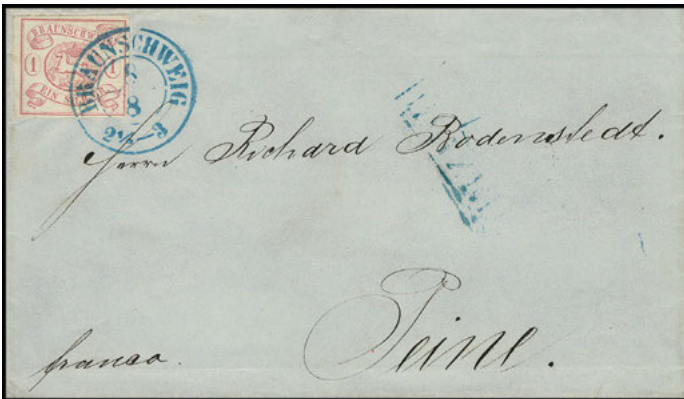 BRAUNSCHW
1 1
EIN S
BRAUNSCHWEIG
8
8
2½-3
Herrn Richard Rodenstedt.
Peine.
franco.